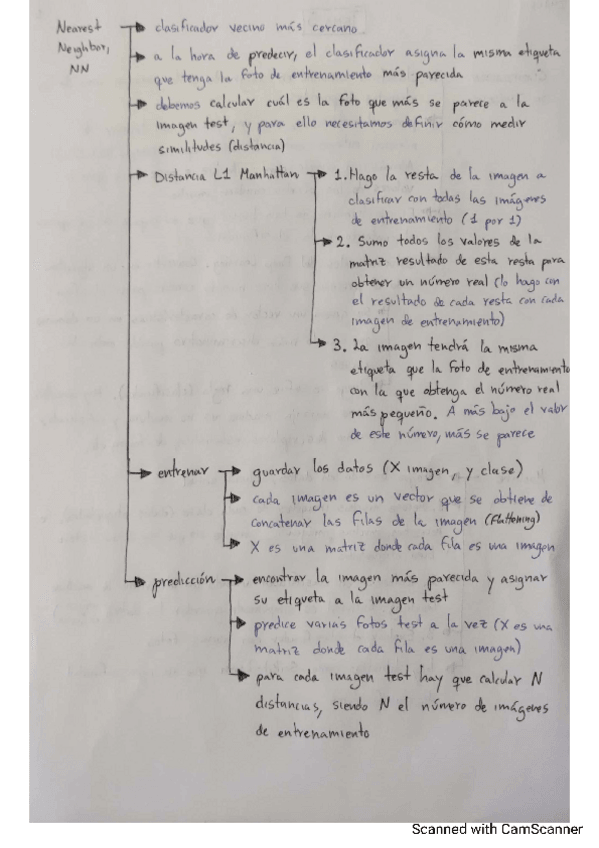 Nearest
Neighbor,
NN
clasificador vecino más cercano
a la hora de predecir, el clasificador asigna la misma etiqueta
que tenga la foto de entrenamiento más parecida
debemos calcular cuál es la foto que más se parece a la
imagen test, y para ello necesitamos definir cómo medir
similitudes (distancia)
Distancia L1 Manhattan
1. Hago la resta de la imagen a
clasificar con todas las imágenes
de entrenamiento (1 por 1)
2. Sumo todos los valores de la
matriz resultado de esta resta para
obtener un número real (lo hago con
el resultado de cada resta con cada
imagen de entrenamiento)
3. La imagen tendrá la misma
etiqueta que la foto de entrenamiento
con la que obtenga el número real
más pequeño. A más bajo el valor
de este número, más se parece
entrenar
guardar los datos (X imagen, y clase)
cada imagen es un vector que se obtiene de
concatenar las filas de la imagen (flattening)
X es una matriz donde cada fila es una imagen
predicción
encontrar la imagen más parecida y asignar
su etiqueta a la imagen test
predice varias fotos test a la vez (X es una
matriz donde cada fila es una imagen)
para cada imagen test hay que calcular N
distancias, siendo N el número de imágenes
de entrenamiento
Scanned with CamScanner